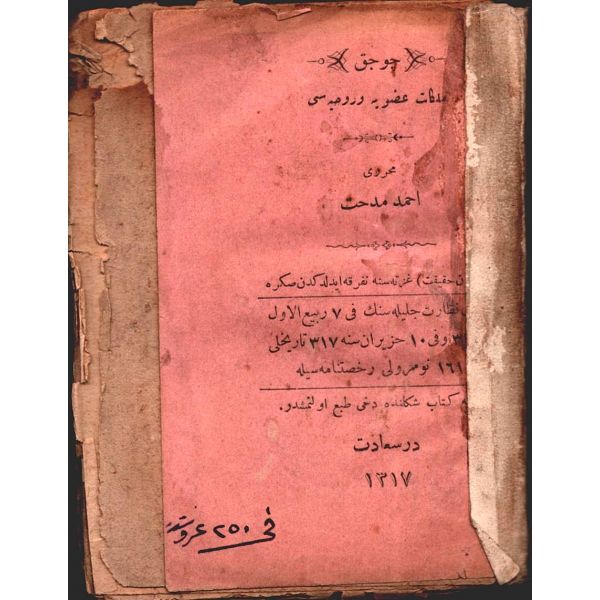 چوجق
ملكات عضويه و روحيه سى
محررى
احمد مدحت
حقيقت) غزته سنه تفرقه ايدلدكدن صكره
نظارت جليله سنك فى ٧ ربيع الاول
وفى ١٠ حزيران سنه ٣١٧ تاريخلى
نومرولى رخصتنامه سيله
كتاب شكلنده دخى طبع اولنمشدر.
درسعادت
١٣١٧
فى ٢٥٠ غروش